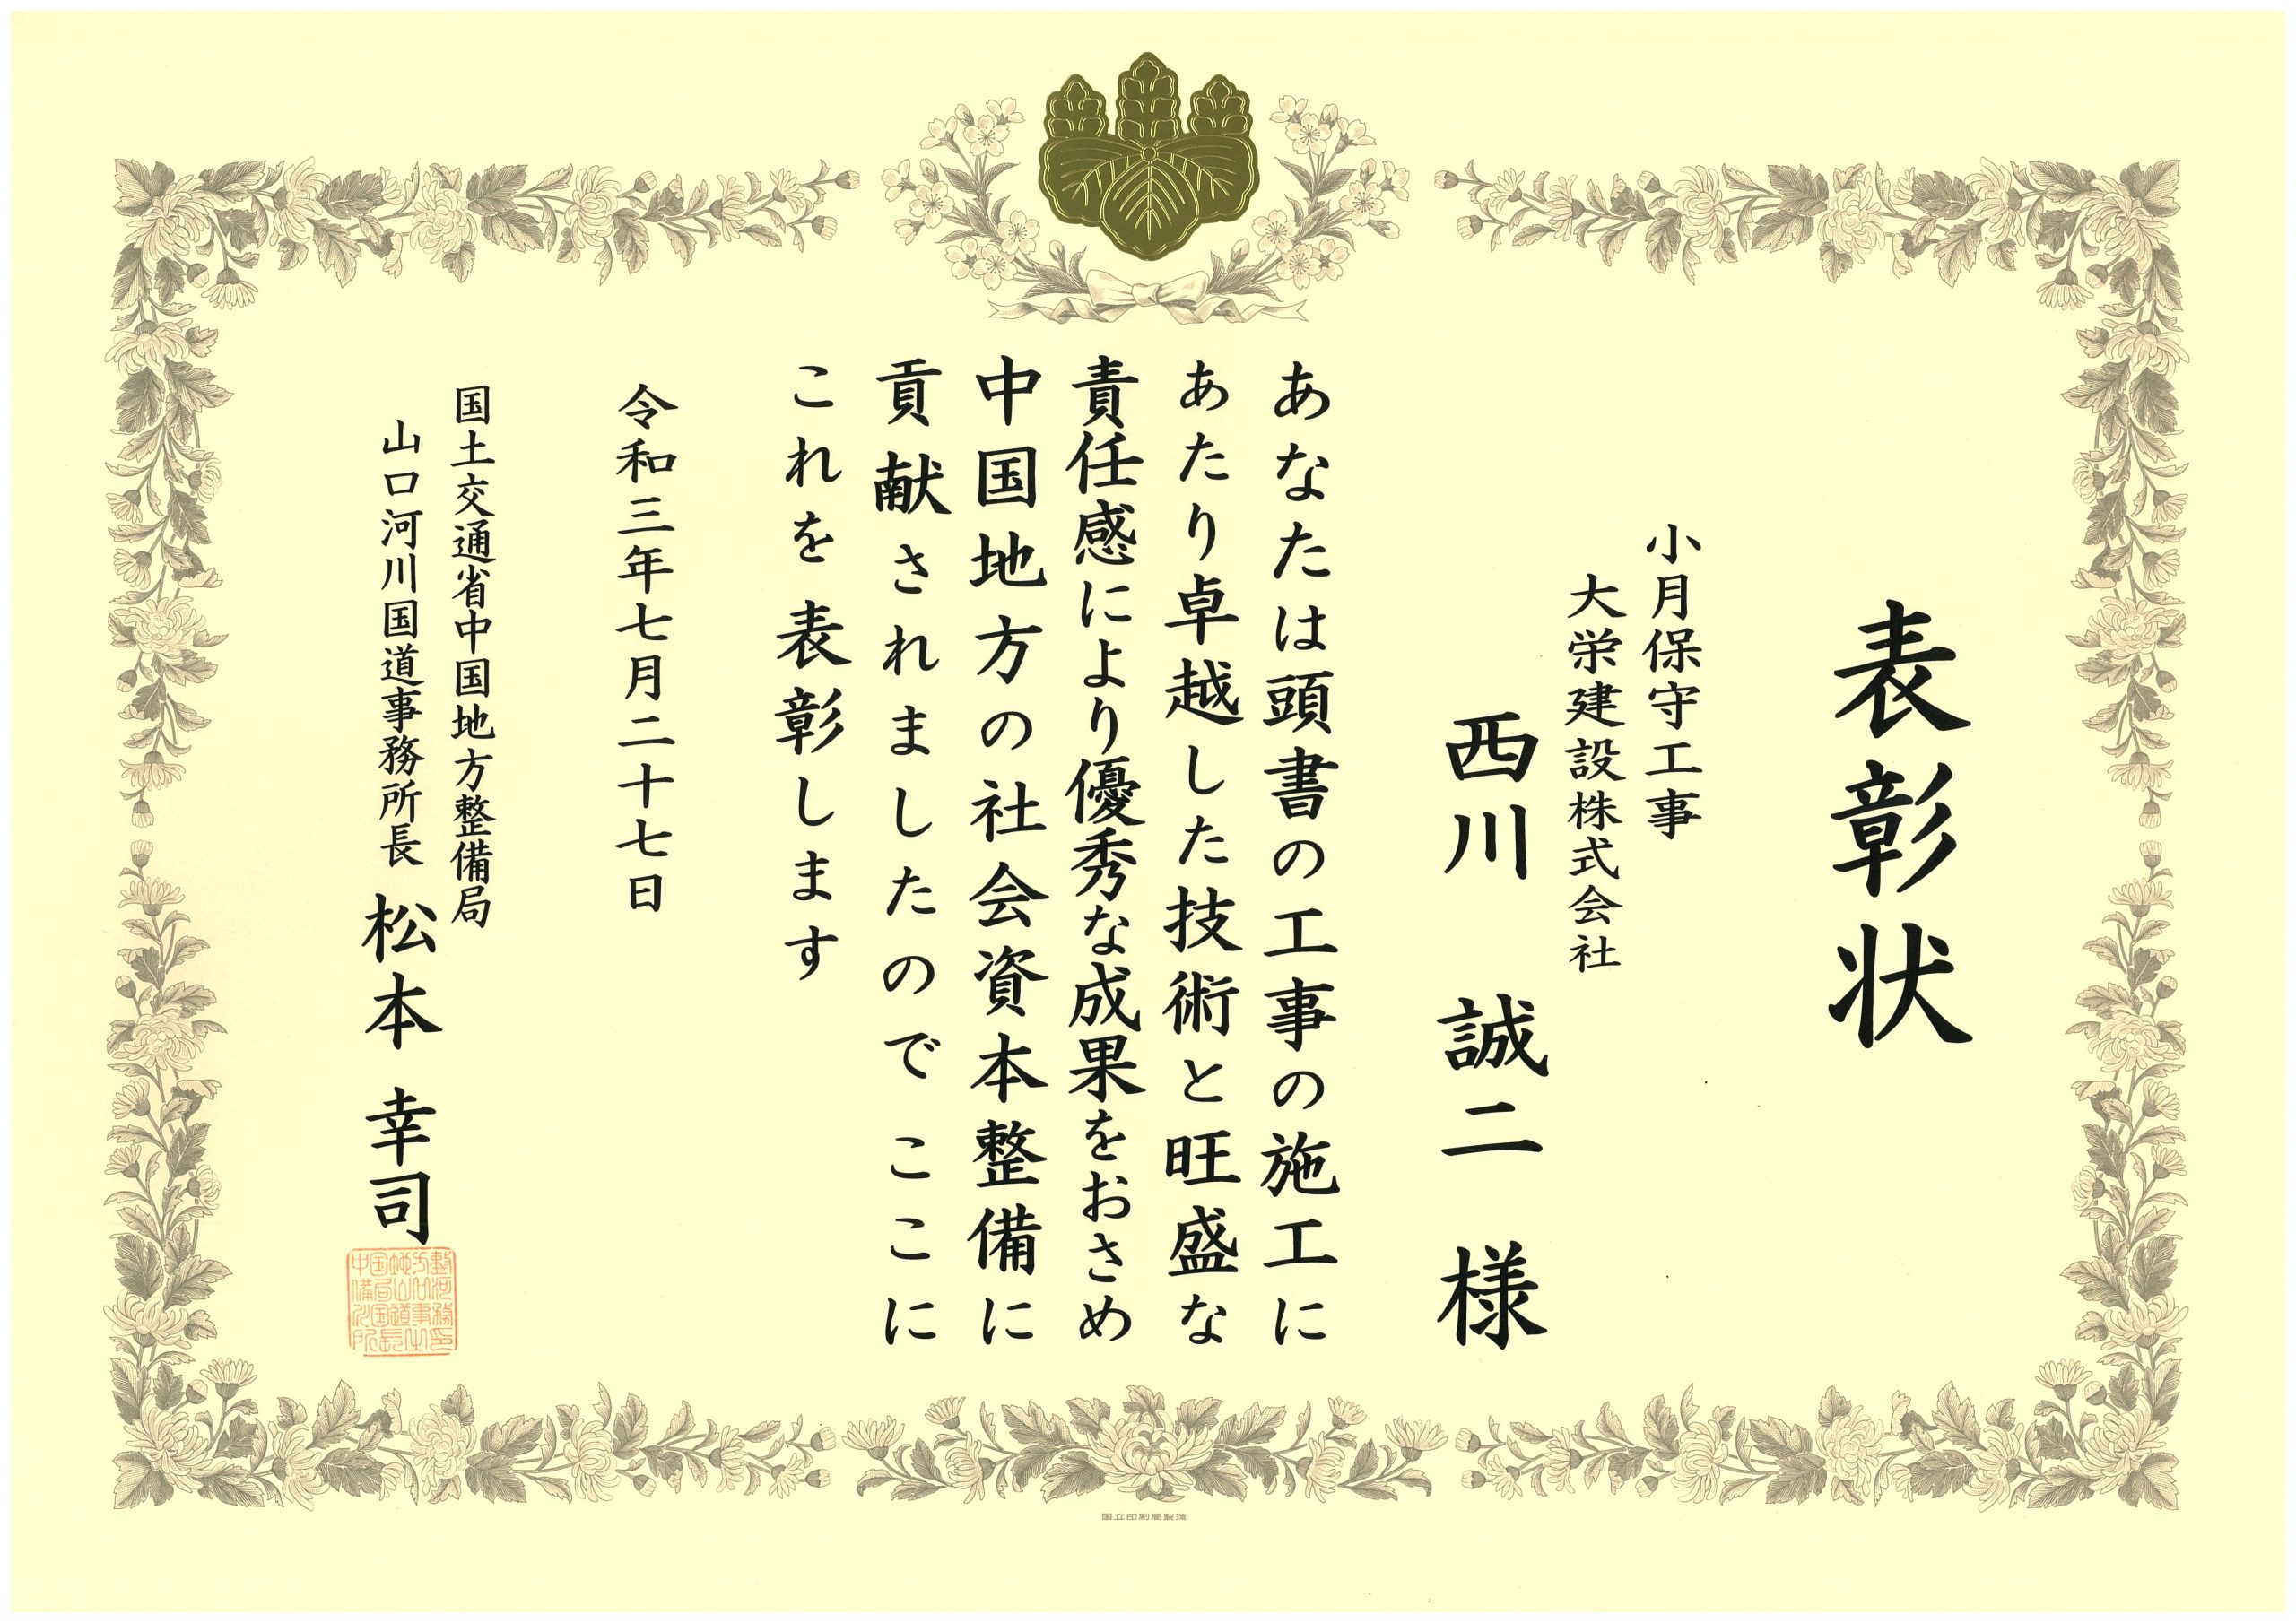 表彰状
小月保守工事
大栄建設株式会社
西川 誠二 様
あなたは頭書の工事の施工に
あたり卓越した技術と旺盛な
責任感により優秀な成果をおさめ
中国地方の社会資本整備に
貢献されましたのでここに
これを表彰します
令和三年七月二十七日
国土交通省中国地方整備局
山口河川国道事務所長 松本 幸司
国立印刷局製造